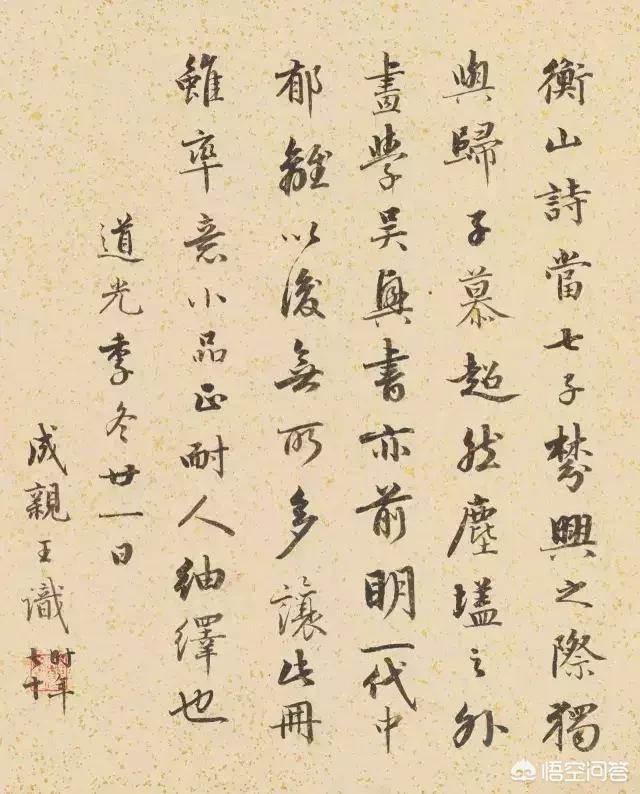 衡山詩當七子棼興之際獨
與歸子慕超然塵壒之外
畫學吳興書亦前明一代中
郁離以後無所多讓此冊
雖率意小品正耐人紬繹也
道光季冬廿一日
成親王識
时年
七十
悟空问答